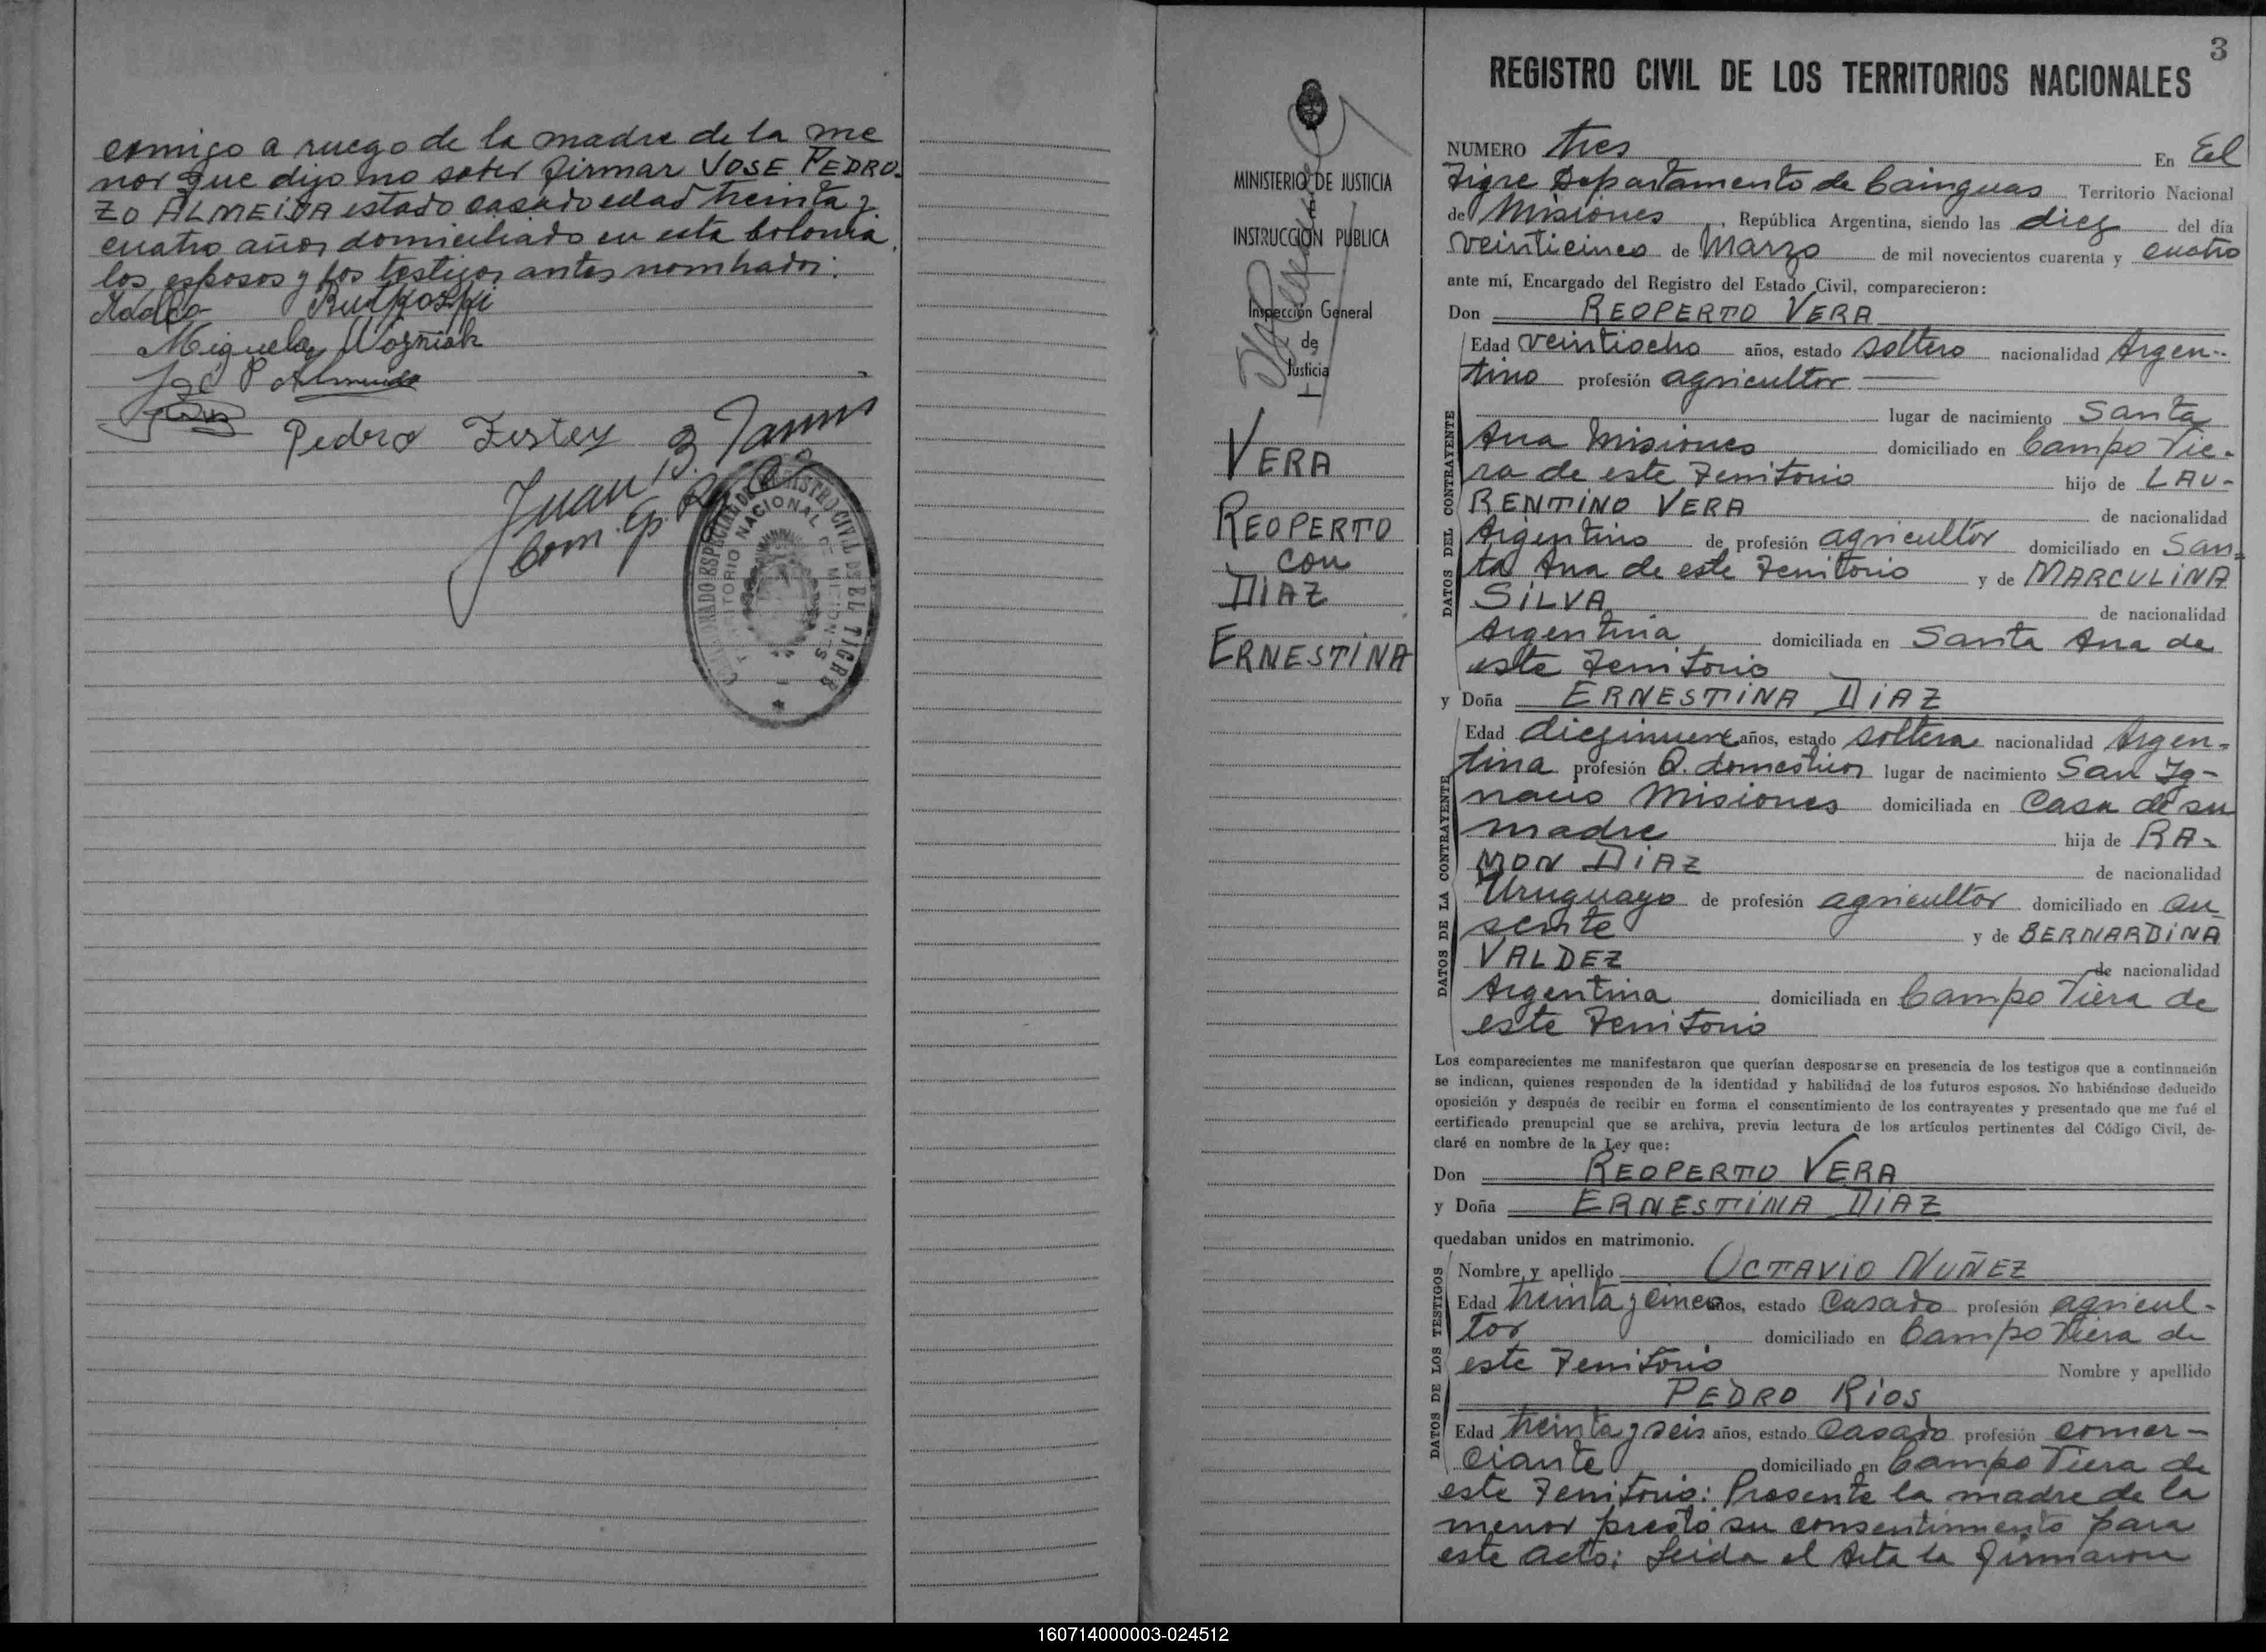 conmigo a ruego de la madre de la me
nor que dijo no saber firmar JOSE PEDRO-
ZO ALMEIDA estado casado edad treinta y
cuatro años domiciliado en esta colonia,
los esposos y los testigos antes nombrados:
Miguela Wozniak
José P Almeida
Pedro Festey
Juan B.
COMISIONADO ESPECIAL DE REGISTRO CIVIL DE EL TIGRE
TERRITORIO NACIONAL DE MISIONES
MINISTERIO DE JUSTICIA
INSTRUCCIÓN PÚBLICA
Inspección General
de
Justicia
VERA
REOPERTO
con
DIAZ
ERNESTINA
3
REGISTRO CIVIL DE LOS TERRITORIOS NACIONALES
NUMERO tres En El
Tigre Departamento de Cainguas Territorio Nacional
de Misiones, República Argentina, siendo las diez del día
veinticinco de Marzo de mil novecientos cuarenta y cuatro
ante mí, Encargado del Registro del Estado Civil, comparecieron:
Don REOPERTO VERA
DATOS DEL CONTRAYENTE
Edad veintiocho años, estado soltero nacionalidad Argen-
tino profesión agricultor
lugar de nacimiento Santa
Ana Misiones domiciliado en Campo Vie-
ra de este Territorio hijo de LAU-
RENTINO VERA de nacionalidad
Argentino de profesión agricultor domiciliado en San-
ta Ana de este Territorio y de MARCULINA
SILVA de nacionalidad
Argentina domiciliada en Santa Ana de
este Territorio
y Doña ERNESTINA DIAZ
DATOS DE LA CONTRAYENTE
Edad diezinueve años, estado soltera nacionalidad Argen-
tina profesión Q. domesticos lugar de nacimiento San Ig-
nacio Misiones domiciliada en Casa de su
madre hija de RA-
MON DIAZ de nacionalidad
Uruguayo de profesión agricultor domiciliado en au
sente y de BERNARDINA
VALDEZ de nacionalidad
Argentina domiciliada en Campo Viera de
este Territorio
Los comparecientes me manifestaron que querían desposarse en presencia de los testigos que a continuación
se indican, quienes responden de la identidad y habilidad de los futuros esposos. No habiéndose deducido
oposición y después de recibir en forma el consentimiento de los contrayentes y presentado que me fué el
certificado prenupcial que se archiva, previa lectura de los artículos pertinentes del Código Civil, de-
claré en nombre de la Ley que:
Don REOPERTO VERA
y Doña ERNESTINA DIAZ
quedaban unidos en matrimonio.
DATOS DE LOS TESTIGOS
Nombre y apellido OCTAVIO NUÑEZ
Edad treinta y cinco años, estado Casado profesión agricul-
tor domiciliado en Campo Viera de
este Territorio Nombre y apellido
PEDRO RIOS
Edad treinta y seis años, estado Casado profesión comer-
ciante domiciliado en Campo Viera de
este Territorio: Presente la madre de la
menor prestó su consentimiento para
este acto: Leida el Acta la firmaron
160714000003-024512